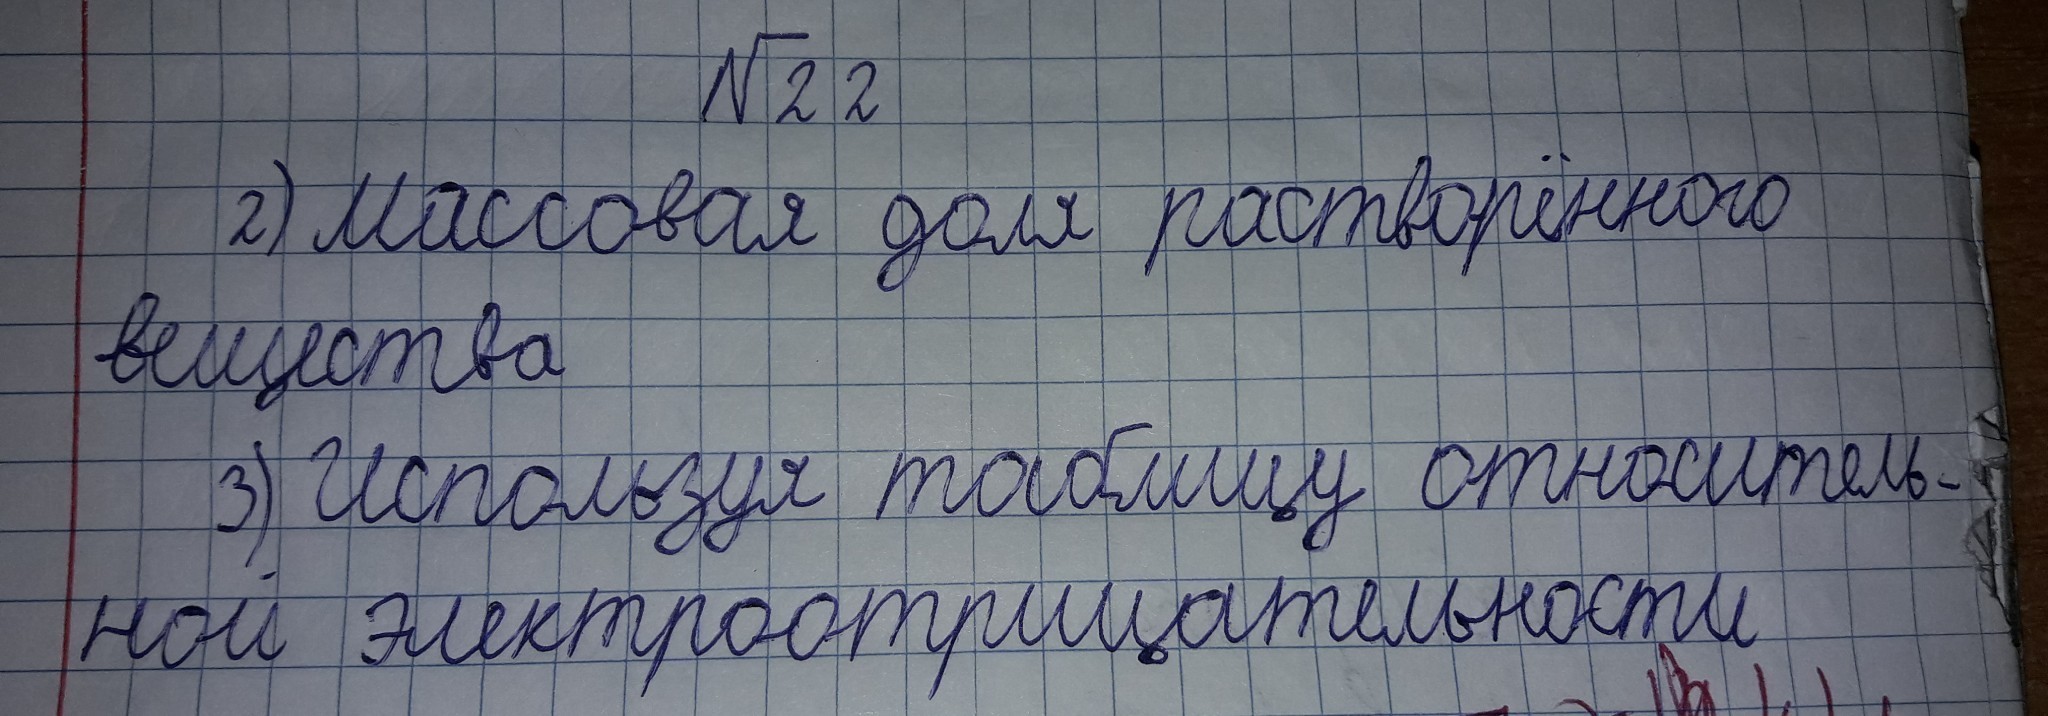 №22
2) Массовая доля растворённого
вещества
3) Используя таблицу относитель-
ной электроотрицательности